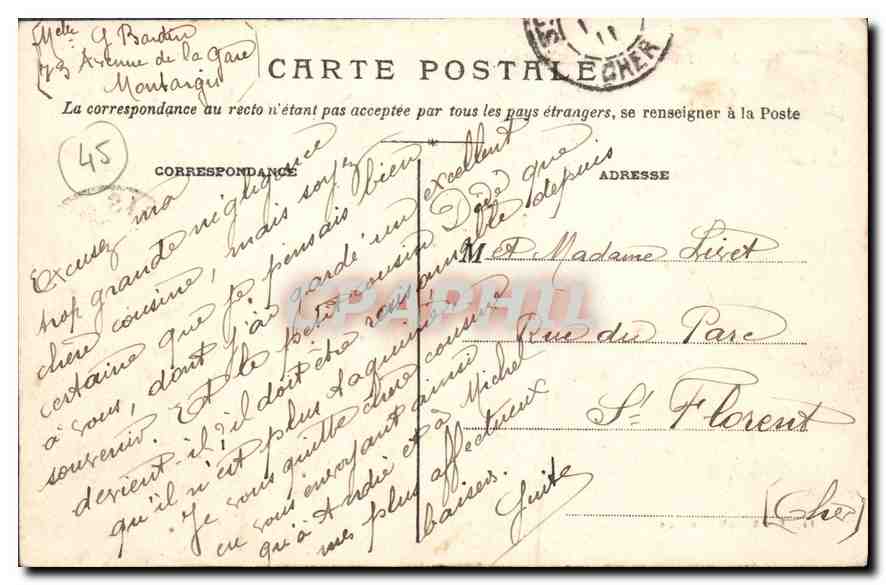 Melle G Bardin
73 Avenue de la Gare
Montargis
CARTE POSTALE
CHER
La correspondance au recto n'étant pas acceptée par tous les pays étrangers, se renseigner à la Poste
45
CORRESPONDANCE
ADRESSE
Excusez ma
trop grande négligence
chère cousine, mais soyez
certaine que je pensais bien
à vous, dont j'ai gardé un excellent
souvenir. Et le petit cousin Dédé que
devient-il? il doit être raisonnable depuis
qu'il n'est plus taquiné
Je vous quitte chère cousine
en vous envoyant ainsi
qu'à André et à Michel
mes plus affectueux
baisers.
M et Madame
Rue du Parc
St Florent
(Cher)
CPAPHIL